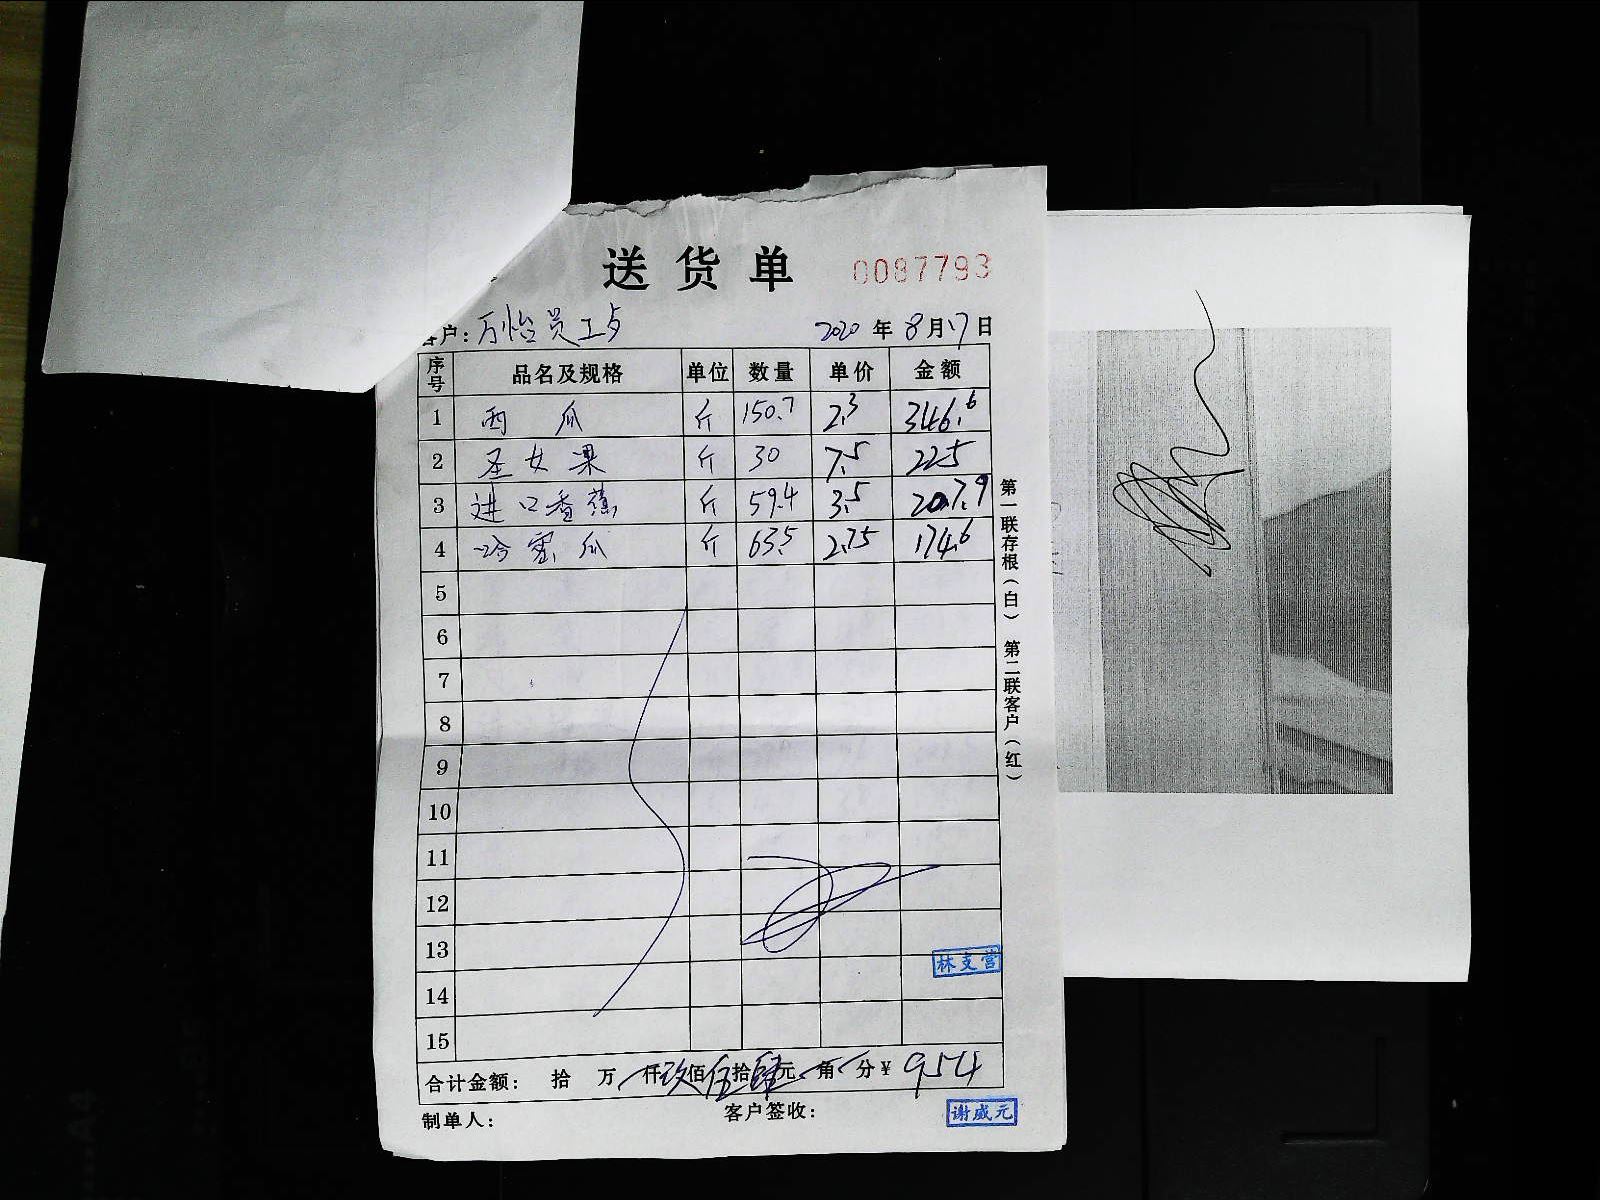 送货单 0087793
客户：万怡员工 2020年8月17日
序号 品名及规格 单位 数量 单价 金额
1 西瓜 斤 150.7 2.3 346.6
2 圣女果 斤 30 7.5 225
3 进口香蕉 斤 59.4 3.5 207.9
4 哈密瓜 斤 63.5 2.75 174.6
5
6
7
8
9
10
11
12
13
14
15
林支营
合计金额： 拾 万 仟玖佰伍拾肆元 角 分￥954
制单人： 客户签收： 谢威元
第一联存根（白） 第二联客户（红）